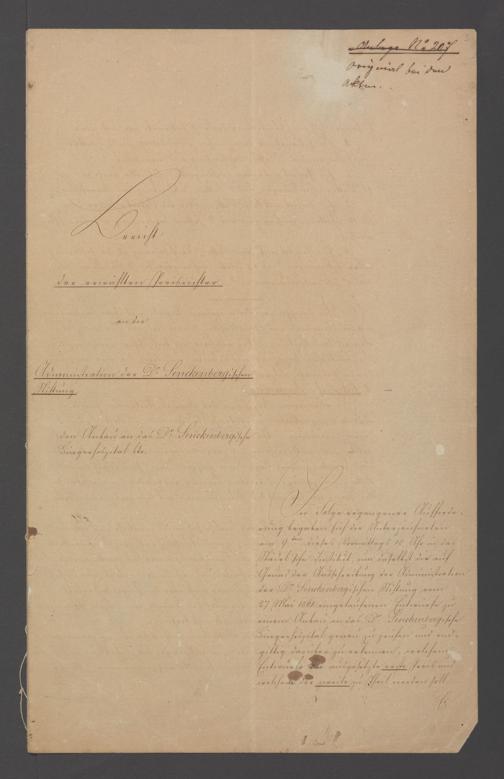 Anlage No 207
Original bei den
Akten.
Bericht
der erwählten Preisrichter
an die
Administration der Dr Senckenbergischen
Stiftung
den Anbau an das Dr Senckenbergische
Bürgerhospital btr.
In Folge ergangener Aufforde-
rung begaben sich die Unterzeichneten
am 9ten dieses, Vormittags 10 Uhr in das
Städel'sche Institut, um daselbst die auf
Grund der Ausschreibung der Administration
der Dr Senckenbergischen Stiftung vom
27 Mai eingelaufenen Entwürfe zu
einem Anbau an das Dr Senckenbergische
Bürgerhospital genau zu prüfen und end-
gültig darüber zu erkennen, welchem
Entwurfe der ausgesetzte erste Preis und
welchem der zweite zu Theil werden soll.